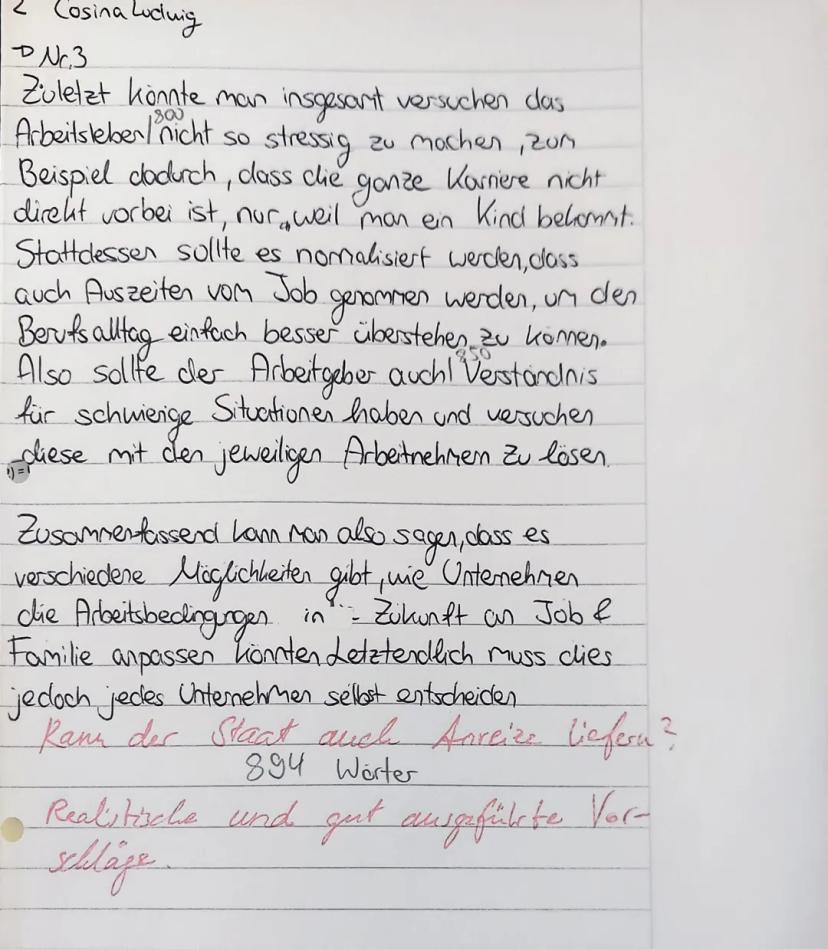 2 Cosina Ludwig
→ Nr.3
Zuletzt könnte man insgesamt versuchen das
800
Arbeitsleben| nicht so stressig zu machen, zum
Beispiel dadurch, dass die ganze Karriere nicht
direkt vorbei ist, nur, weil man ein Kind bekommt.
Stattdessen sollte es normalisiert werden, dass
auch Auszeiten vom Job genommen werden, um den
Berufsalltag einfach besser überstehen zu können.
850
Also sollte der Arbeitgeber auch| Verständnis
für schwierige Situationen haben und versuchen
diese mit den jeweiligen Arbeitnehmern zu lösen.
Zusammenfassend kann man also sagen, dass es
verschiedene Möglichkeiten gibt, wie Unternehmen
die Arbeitsbedingungen in Zukunft an Job &
Familie anpassen könnten. Letztendlich muss dies
jedoch jedes Unternehmen selbst entscheiden
Kann der Staat auch Anreize liefern?
894 Wörter
Realistische und gut ausgeführte Vor-
schläge.